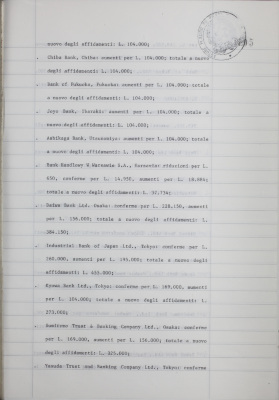 nuovo degli affidamenti: L. 104,000;
. Chiba Bank, Chiba: aumenti per L. 104,000; totale a nuovo
degli affidamenti: L. 104,000;
. Bank of Fukuoka, Fukuoka: aumenti per L. 104,000; totale
a nuovo degli affidamenti: L. 104,000;
. Joyo Bank, Ibaraki: aumenti per L. 104,000; totale a
nuovo degli affidamenti: L. 104,000;
. Ashikaga Bank, Utsunomiya: aumenti per L. 104,000; totale
a nuovo degli affidamenti: L. 104,000;
. Bank Handlowy W.Warszawie S.A., Varsavia: riduzioni per L.
650, conferme per L. 14,950, aumenti per L.
totale a nuovo degli affidamenti: L.
. Daiwa Bank Ltd. Osaka: conferme per L. 228,150, aumenti
per L. 156,000; totale a nuovo degli affidamenti: L.
384,150;
. Industrial Bank of Japan Ltd., Tokyo: conferme per L.
aumenti per L. totale a nuovo degli
affidamenti: L.
. Kyowa Bank Ltd., Tokyo: conferme per L. 169,000, aumenti
per L. 104,000; totale a nuovo degli affidamenti: L.
273,000;
. Sumitomo Trust & Banking Company Ltd., Osaka: conferme
per L. 169,000, aumenti per L. 156,000; totale a nuovo
degli affidamenti: L. 325,000;
. Yasuda Trust and Banking Company Ltd., Tokyo: conferme